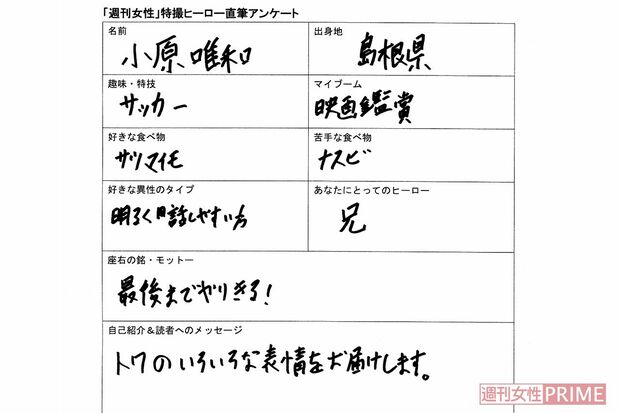 「週刊女性」特撮ヒーロー直筆アンケート
名前
小原唯和
出身地
島根県
趣味・特技
サッカー
マイブーム
映画鑑賞
好きな食べ物
サツマイモ
苦手な食べ物
ナスビ
好きな異性のタイプ
明るく話しやすい方
あなたにとってのヒーロー
兄
座右の銘・モットー
最後までやりきる!
自己紹介&読者へのメッセージ
トワのいろいろな表情をお届けします。
週刊女性PRIME